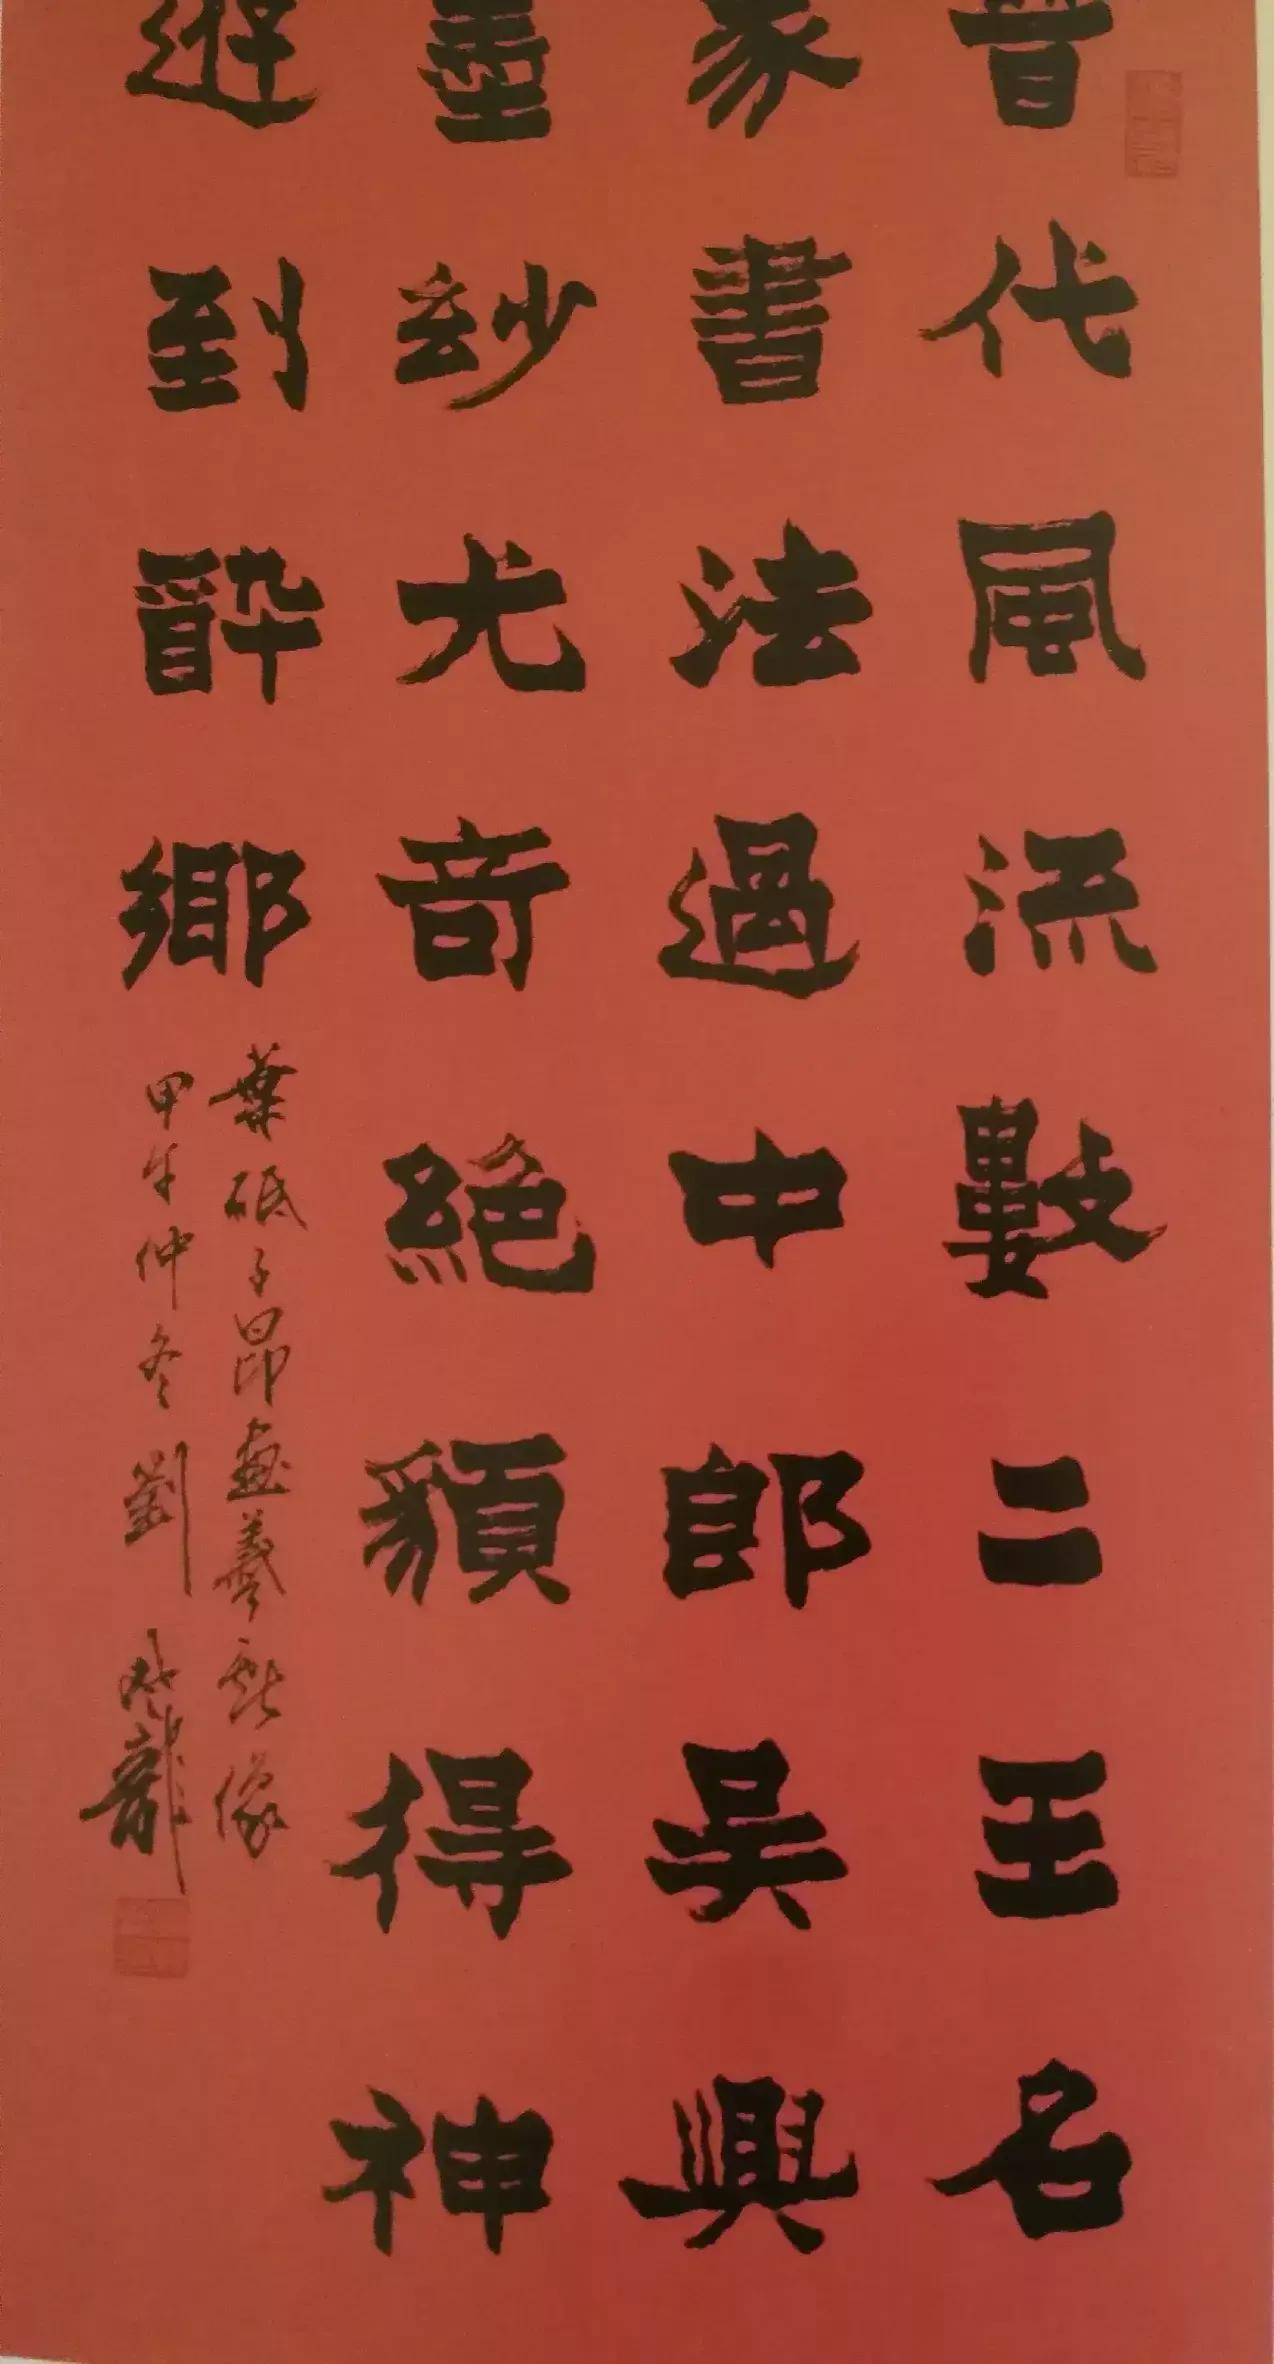 晉代風流數二王名
家書法過中郎吳興
墨玅尤竒絕䫉得神
遊到酔鄉
葉砥子昂畫羲獻像
甲午仲冬劉 龍